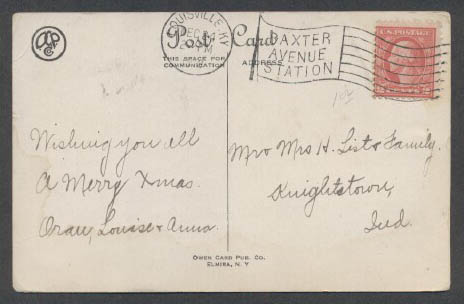 LOUISVILLE, KY.
DEC 24
BAXTER
AVENUE
STATION
U.S. POSTAGE
Post Card
THIS SPACE FOR
COMMUNICATION
ADDRESS
Wishing you all
A Merry Xmas.
Oran, Louise + Anna
Mr & Mrs H. List & Family.
Knightstown,
Ind.
OWEN CARD PUB. CO.
ELMIRA, N. Y